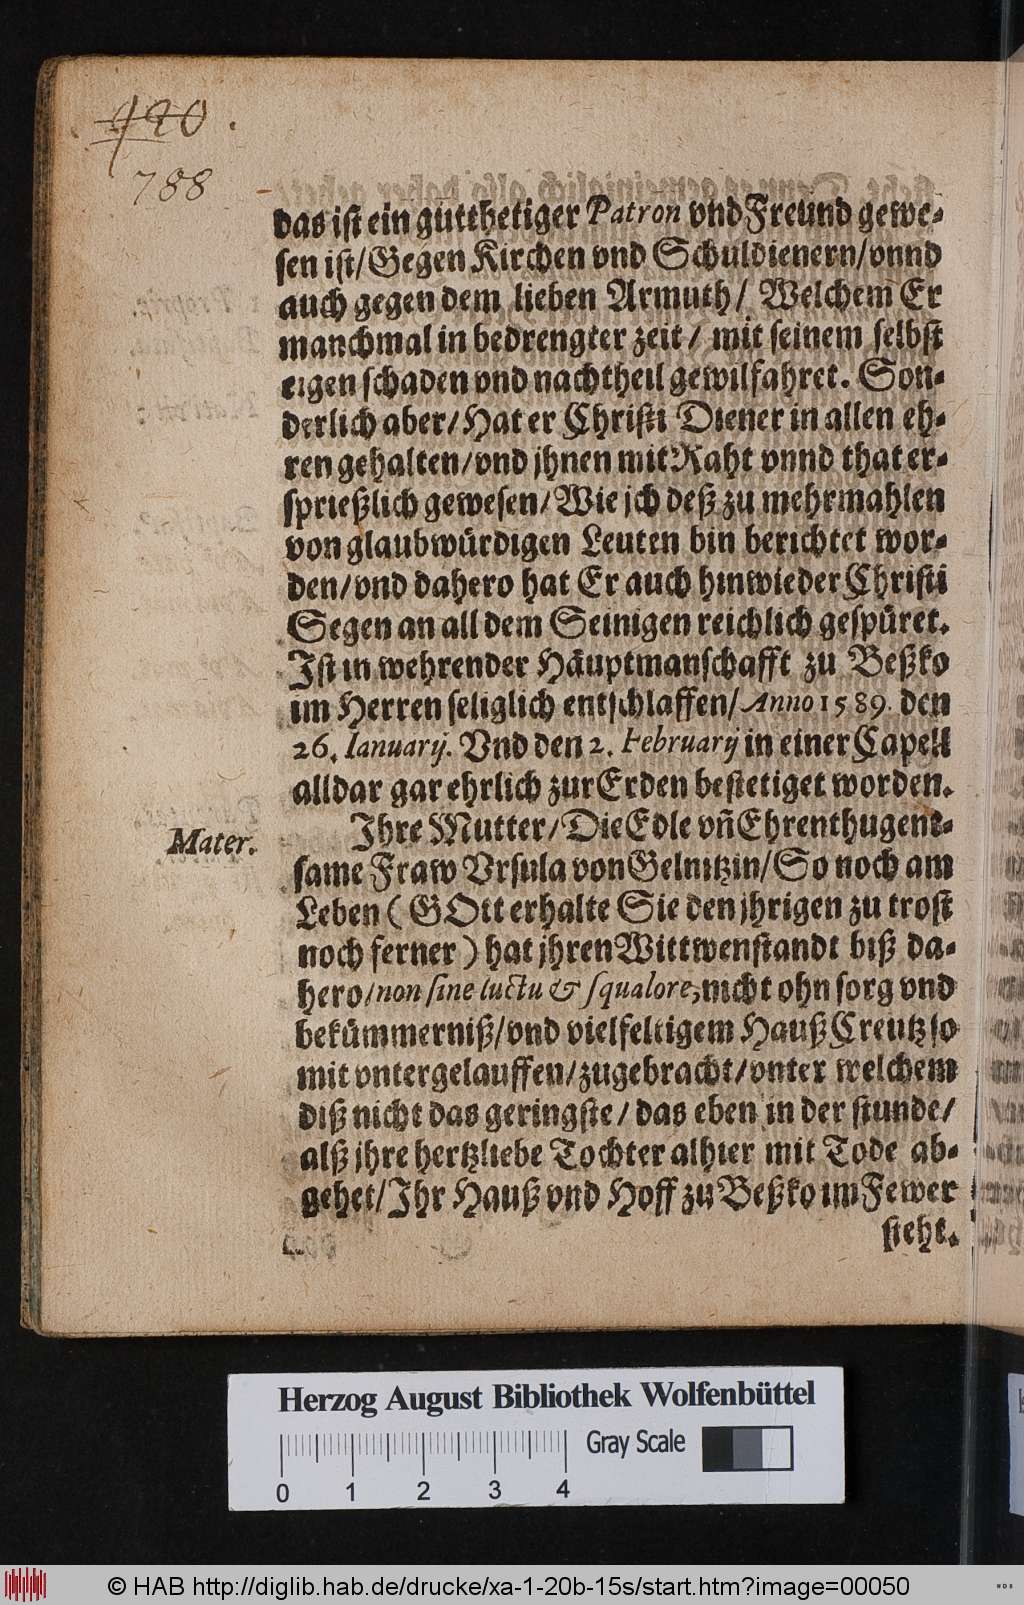 420.
788
das ist ein gutthetiger Patron vnd Freund gewe-
sen ist/ Gegen Kirchen vnd Schuldienern/ vnnd
auch gegen dem lieben Armuth/ Welchem Er
manchmal in bedrengter zeit/ mit seinem selbst
eigen schaden vnd nachtheil gewilfahret. Son-
derlich aber/ Hat er Christi Diener in allen eh-
ren gehalten/ vnd jhnen mit Raht vnnd that er-
sprießlich gewesen/ Wie jch deß zu mehrmahlen
von glaubwürdigen Leuten bin berichtet wor-
den/ vnd dahero hat Er auch hinwieder Christi
Segen an all dem Seinigen reichlich gespüret.
Ist in wehrender Häuptmanschafft zu Beßko
im Herren seliglich entschlaffen/ Anno 1589. den
26. Ianuarij. Vnd den 2. Februarij in einer Capell
alldar gar ehrlich zur Erden bestetiget worden.
Mater.
Ihre Mutter/ Die Edle vñ Ehrenthugent-
same Fraw Vrsula von Gelnitzin/ So noch am
Leben ( GOtt erhalte Sie den jhrigen zu trost
noch ferner ) hat jhren Wittwenstandt biß da-
hero/ non sine luctu & squalore, nicht ohn sorg vnd
bekümmerniß/ vnd vielfeltigem Hauß Creutz so
mit vntergelauffen/ zugebracht/ vnter welchem
diß nicht das geringste/ das eben in der stunde/
alß jhre hertzliebe Tochter alhier mit Tode ab-
gehet/ Ihr Hauß vnd Hoff zu Beßko im Fewer
steht.
Herzog August Bibliothek Wolfenbüttel
Gray Scale
0 1 2 3 4
© HAB http://diglib.hab.de/drucke/xa-1-20b-15s/start.htm?image=00050